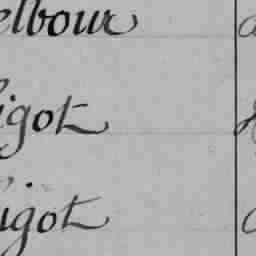 elbour
igot
igot